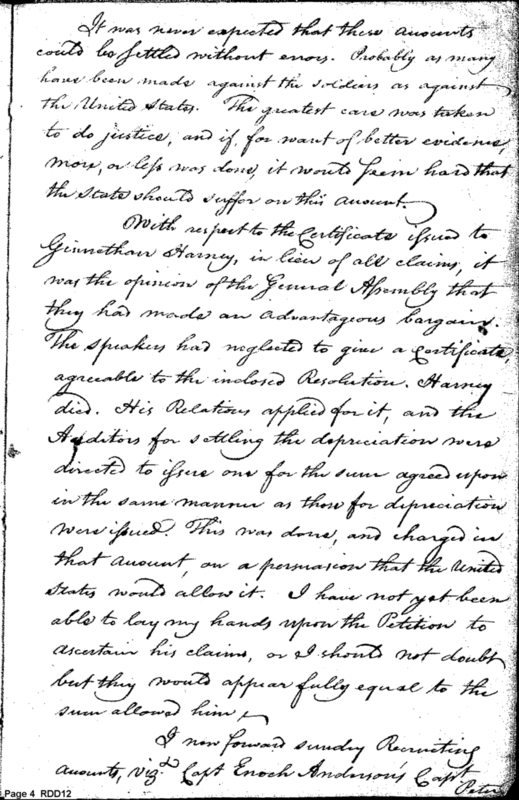 It was never expected that these accounts
could be settled without errors. Probably as many
have been made against the soldiers as against
the United States. The greatest care was taken
to do justice, and if, for want of better evidence,
more, or less was done, it would seem hard that
the State should suffer on this account.
With respect to the Certificate issued to
Ginnethan Harney, in lieu of all claims, it
was the opinion of the General Assembly that
they had made an advantageous bargain.
The Speakers had neglected to give a Certificate,
agreeable to the inclosed Resolution. Harney
died. His Relations applied for it, and the
Auditors for settling the depreciation were
directed to issue one for the sum agreed upon
in the same manner as those for depreciation
were issued. This was done, and charged in
that account, on a persuasion that the United
States would allow it. I have not yet been
able to lay my hands upon the Petition to
ascertain his claims, or I should not doubt
but they would appear fully equal to the
sum allowed him.
I now forward sundry Recruiting
accounts, vizd. Capt Enoch Anderson's Capt
Peter
Page 4 RDD12